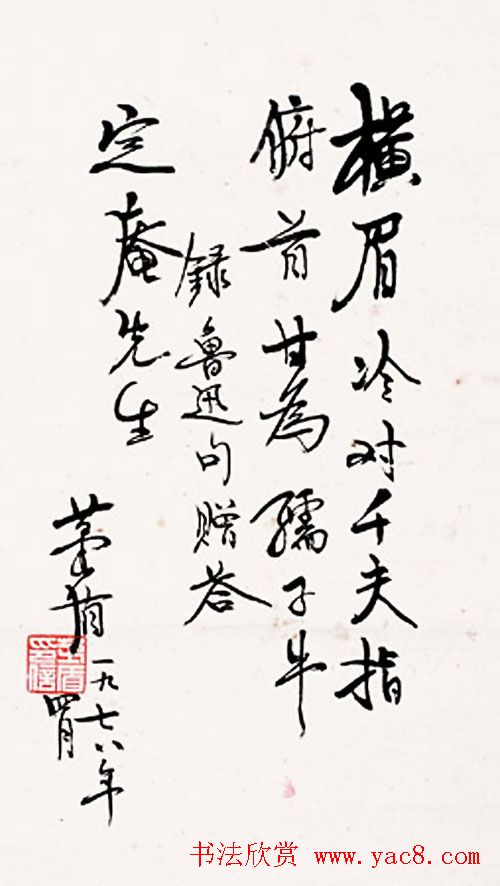 横眉冷对千夫指
俯首甘為孺子牛
録魯迅句赠荅
定庵先生
茅盾 一九七八年
四月
茅盾印信
书法欣赏 www.yac8.com